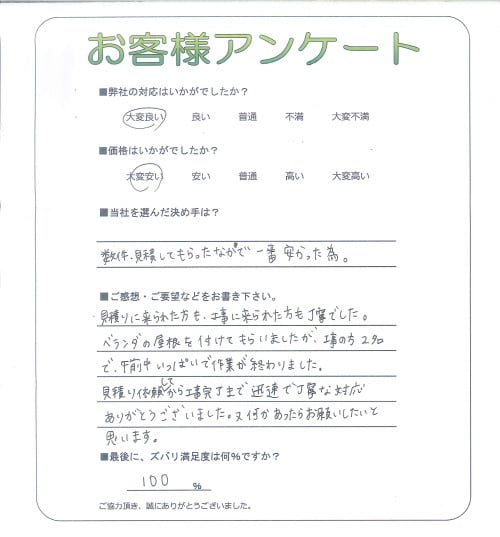 お客様アンケート
■弊社の対応はいかがでしたか?
大変良い 良い 普通 不満 大変不満
■価格はいかがでしたか?
大変安い 安い 普通 高い 大変高い
■当社を選んだ決め手は?
数件、見積してもらったなかで 一番 安かった為。
■ご感想・ご要望などをお書き下さい。
見積りに来られた方も、工事に来られた方も丁寧でした。
ベランダの屋根を付けてもらいましたが、工事の方2名
で、午前中いっぱいで作業が終わりました。
見積り依頼してから工事完了まで迅速で丁寧な対応
ありがとうございました。又何かあったらお願いしたいと
思います。
■最後に、ズバリ満足度は何%ですか?
100 %
ご協力頂き、誠にありがとうございました。